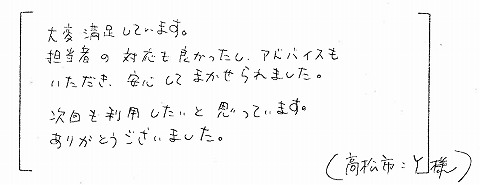 大変満足しています。
担当者の対応も良かったし、アドバイスも
いただき、安心してまかせられました。
次回も利用したいと思っています。
ありがとうございました。
(高松市：Y様)